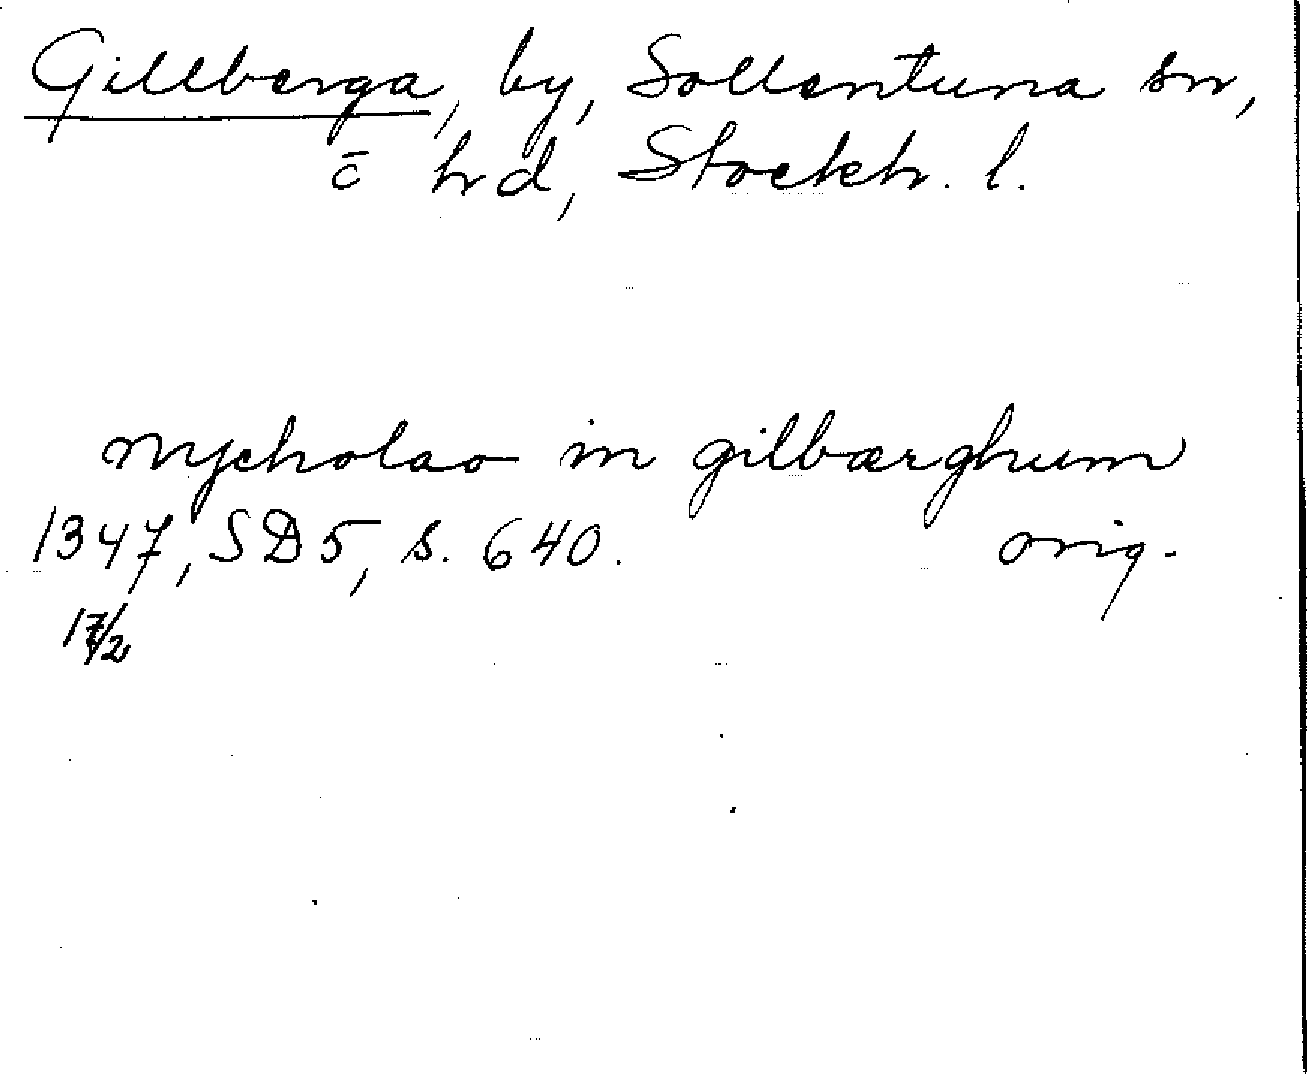 Gillberga, by, Sollentuna sn,
c̄ hd, Stockh. l.
nycholao in gilbærghum
1347, SD 5, s. 640. orig.
17/2